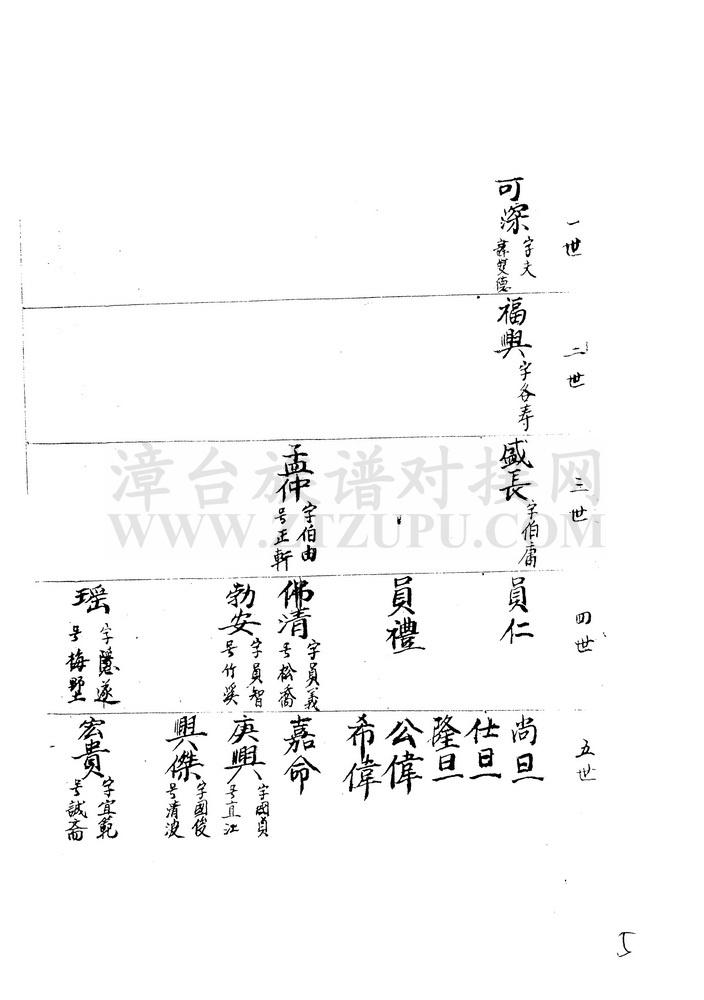 一世
可深
字夫
諱雙德
二世
福興
字各寿
三世
盛長
字伯庸
孟仲
字伯由
号正軒
四世
員仁
員禮
佛清
字員義
号松喬
勃安
字員智
号竹溪
瑶
字隱遂
号梅墅
五世
尚旦
仕旦
隆旦
公偉
希偉
嘉命
庚興
字國貞
号直江
興傑
字國俊
号清波
宏貴
字宜範
号誠斋
漳台族谱对接网
WWW.ZTZUPU.COM
5